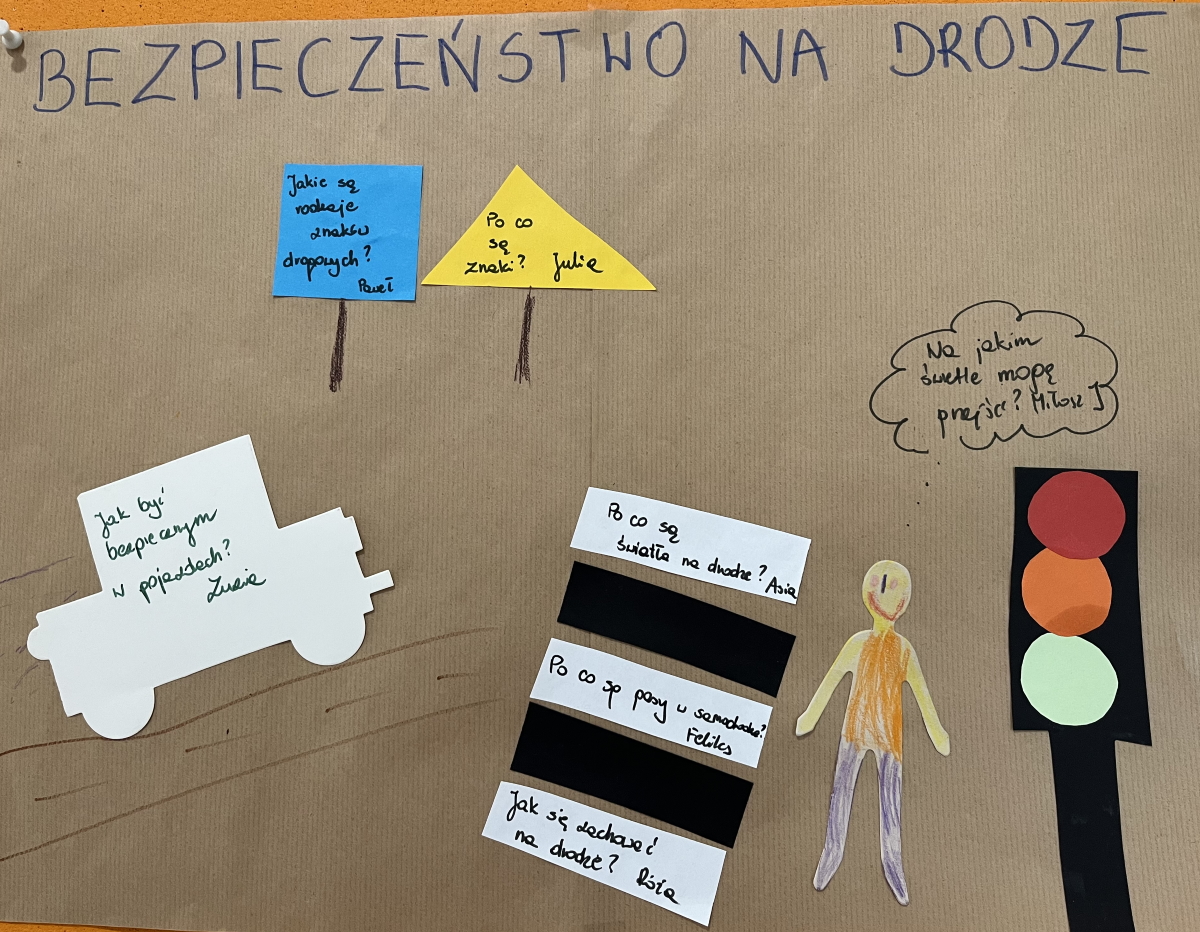 BEZPIECZEŃSTWO NA DRODZE
Jakie są
rodzaje
znaków
drogowych?
Paweł
Po co
są
znaki? Julia
Na jakim
świetle mogę
przejść? Miłosz J
Jak być
bezpiecznym
w pojazdach?
Zuzia
Po co są
światła na drodze? Asia
Po co są pasy w samochodzie?
Feliks
Jak się zachować
na drodze? Rózia